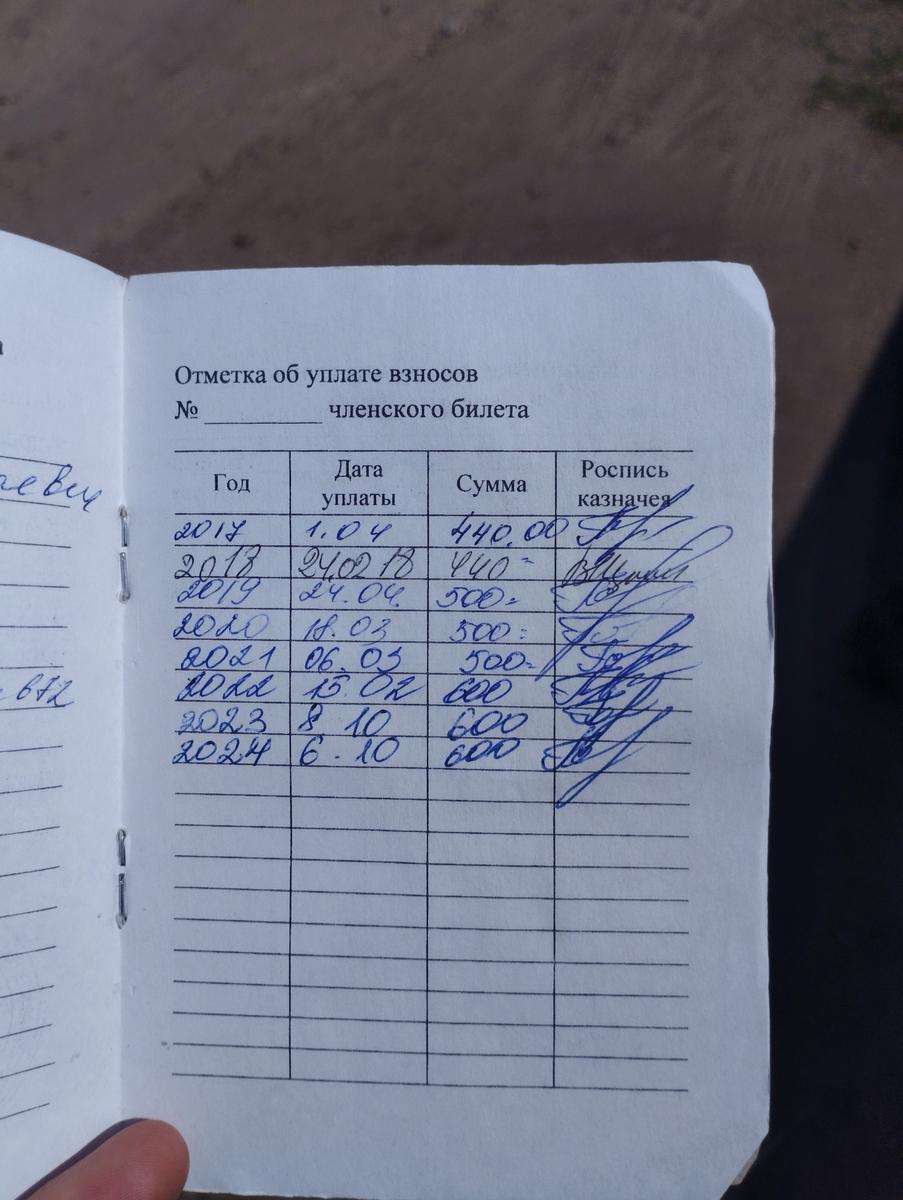 а
Отметка об уплате взносов
№ ________ членского билета
Год Дата уплаты Сумма Роспись казначея
2017 1.04 440,00
2018 24.02 18 440=
2019 24.04. 500=
2020 18.03 500=
2021 06.03 500=
2022 15.02 600
2023 8.10 600
2024 6.10 600